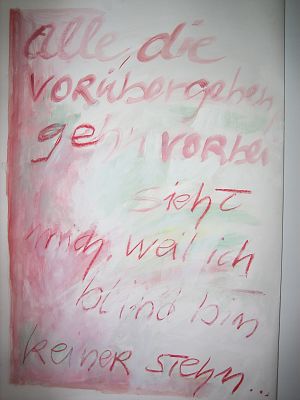 alle, die
vorübergehen,
gehn vorbei
sieht
mich, weil ich
blind bin
keiner stehn...